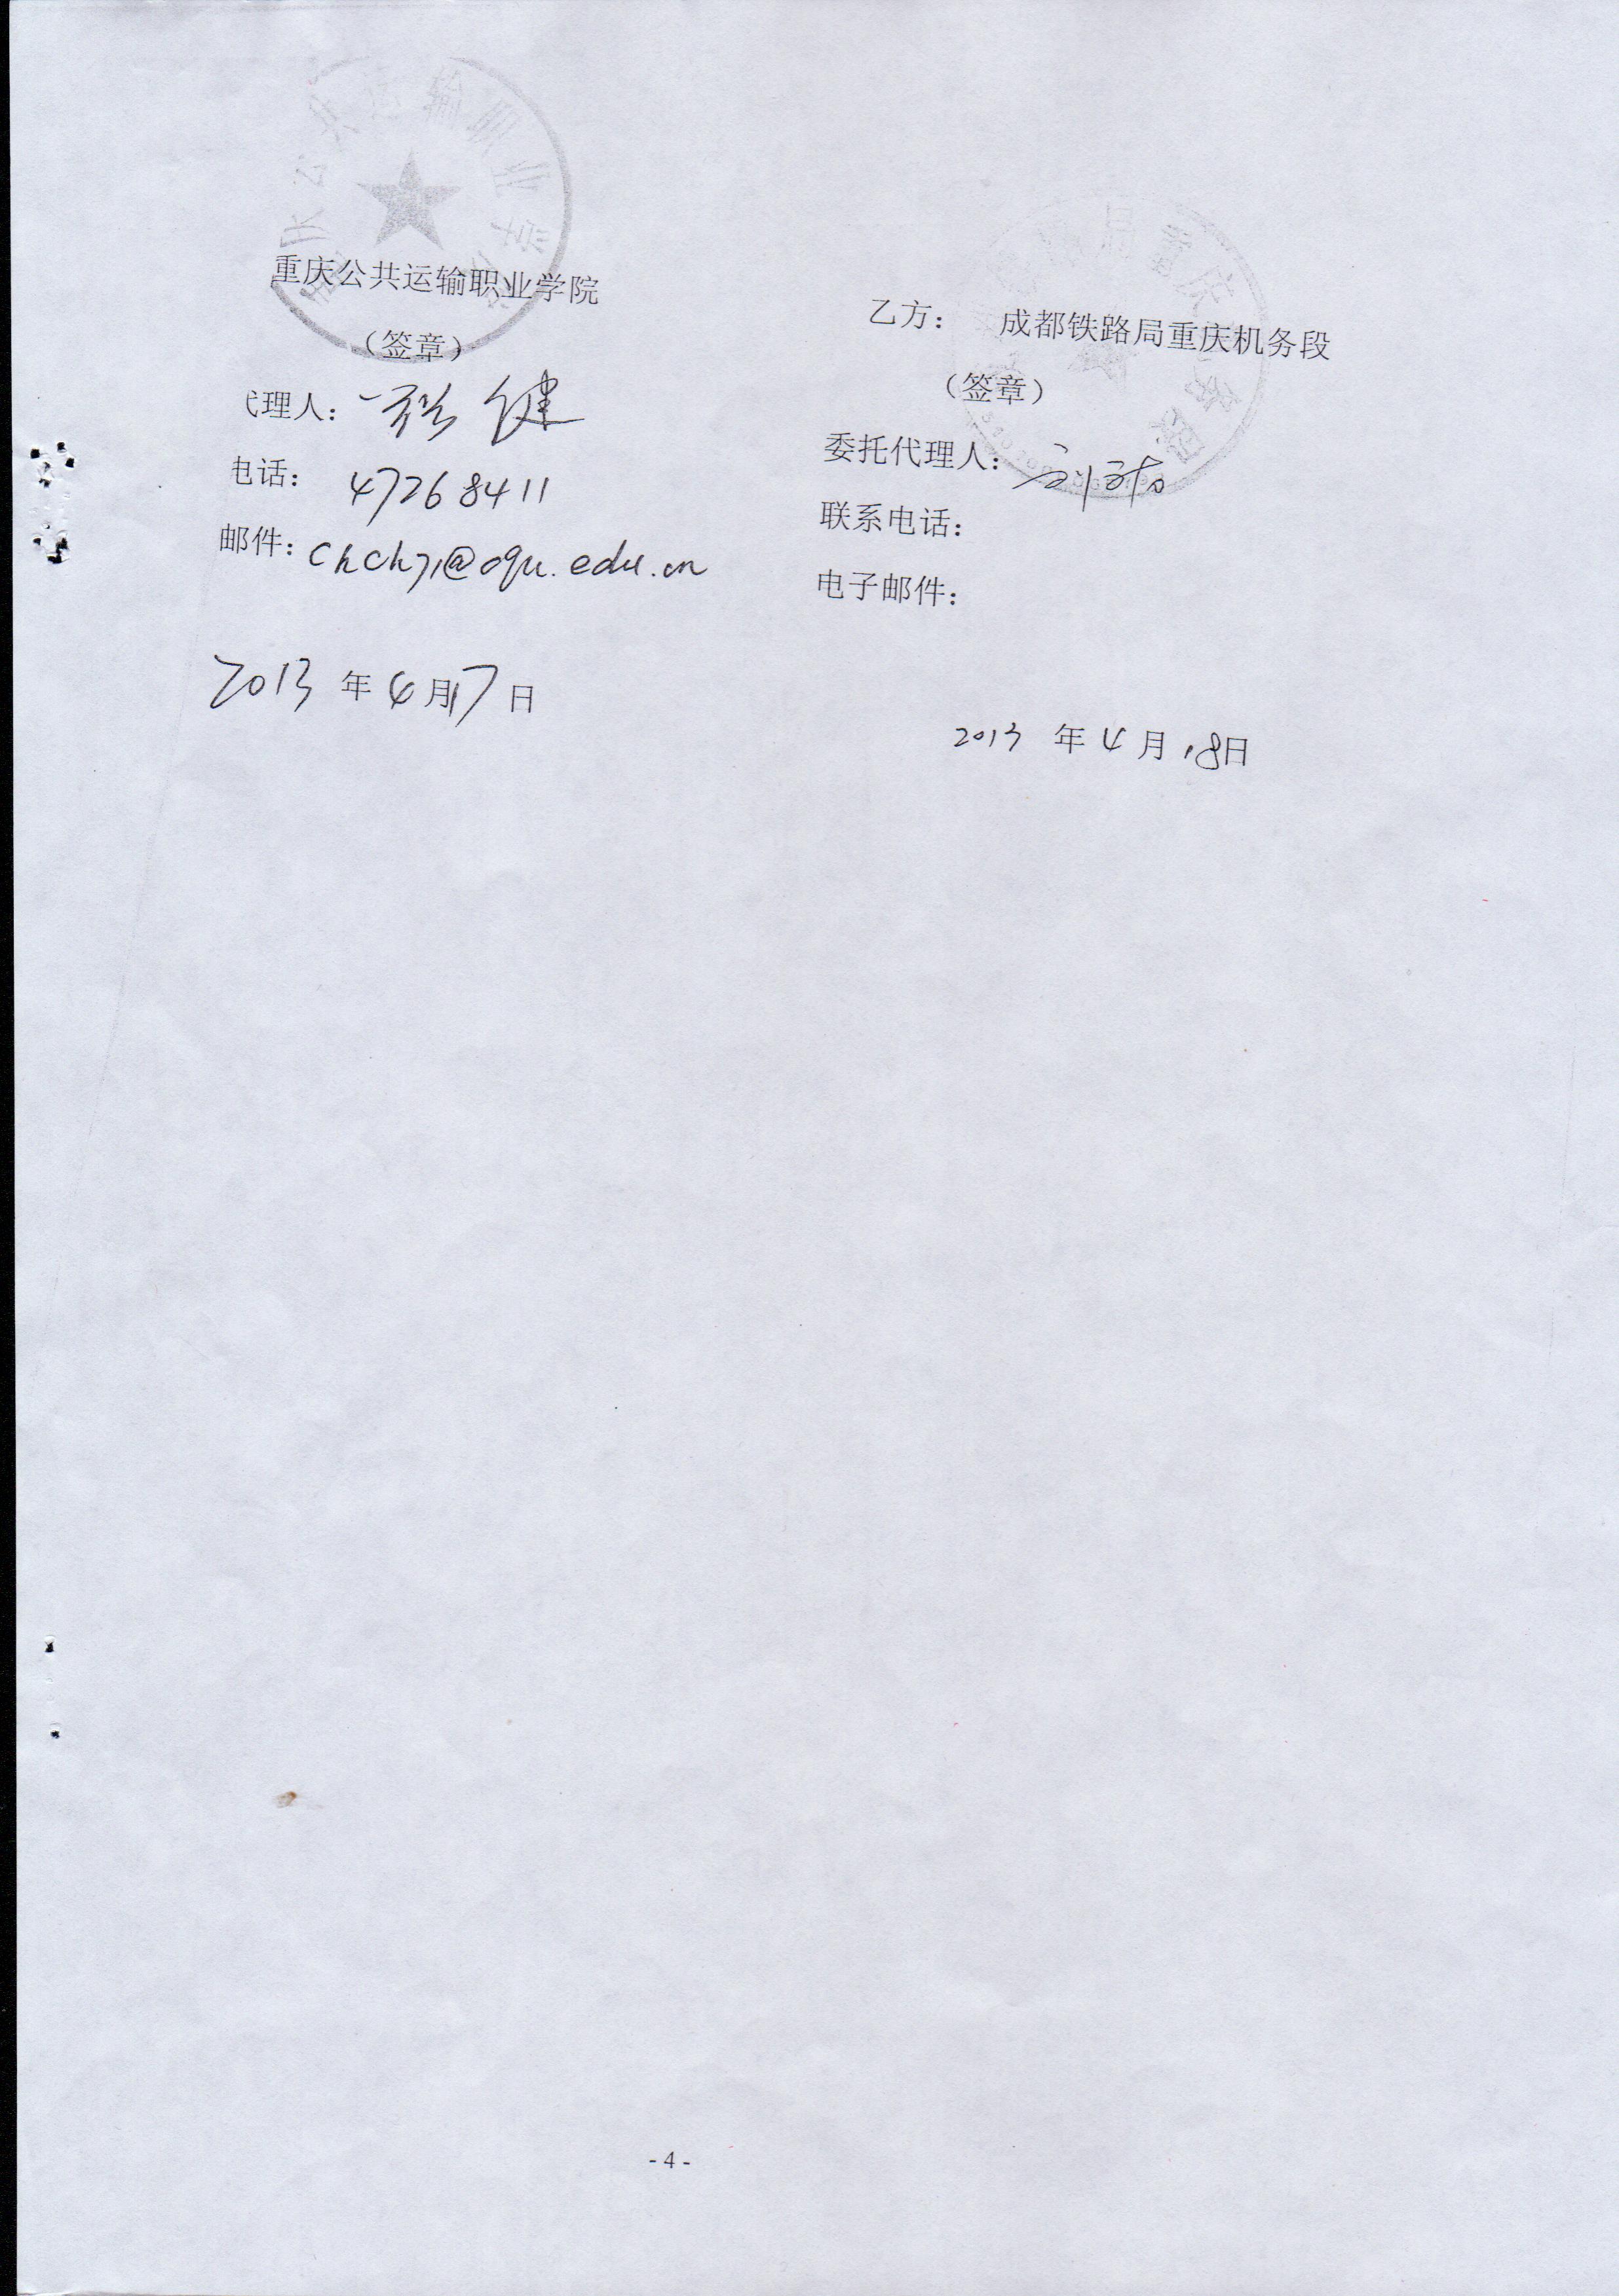 重庆公共运输职业学院
（签章）
代理人：
电话： 47268411
邮件：
2013 年 4 月 17 日
乙方： 成都铁路局重庆机务段
（签章）
委托代理人：
联系电话：
电子邮件：
2013 年 4 月 18 日
- 4 -